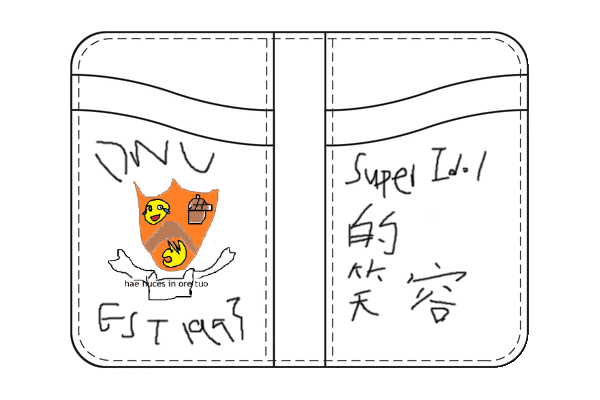 DNU
hae nuces in ore tuo
EST 1993
Super Idol
的
笑容